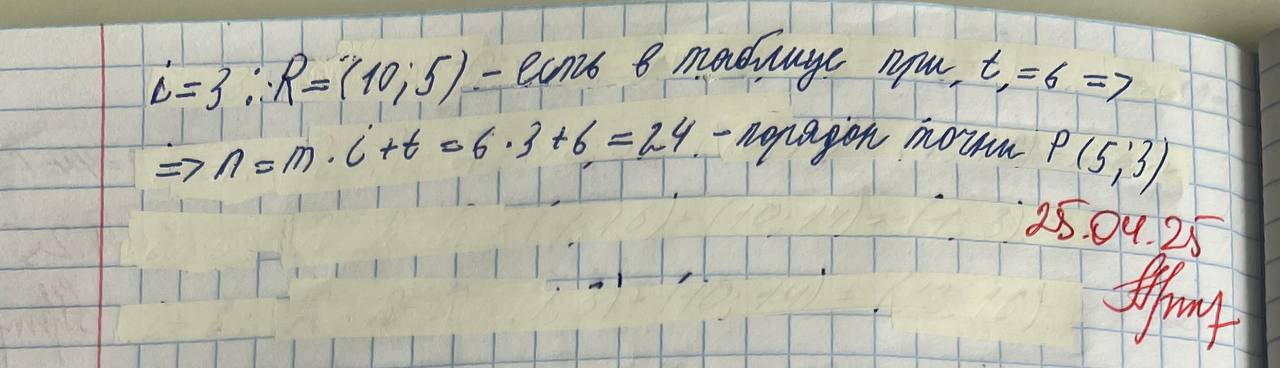 i=3: R=(10;5) - есть в таблице при t,=6 =>
=> n = m·i+t = 6·3+6 = 24 - порядок точки P(5;3)
25.04.25